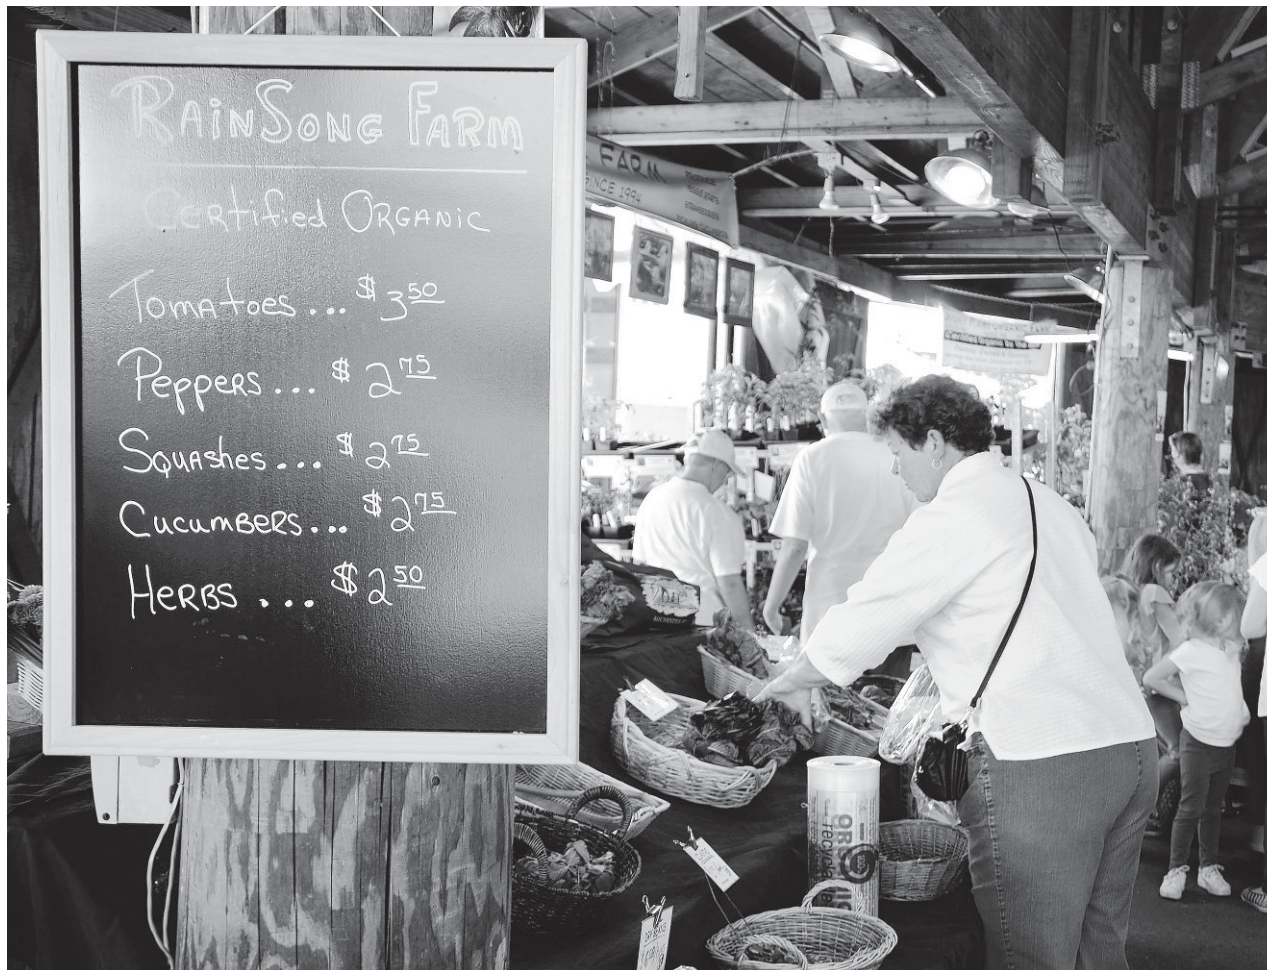 RainSong Farm
Certified Organic
Tomatoes... $3.50
Peppers... $2.75
Squashes... $2.75
Cucumbers... $2.75
Herbs... $2.50
FARM
SINCE 1994
DRY BEANS